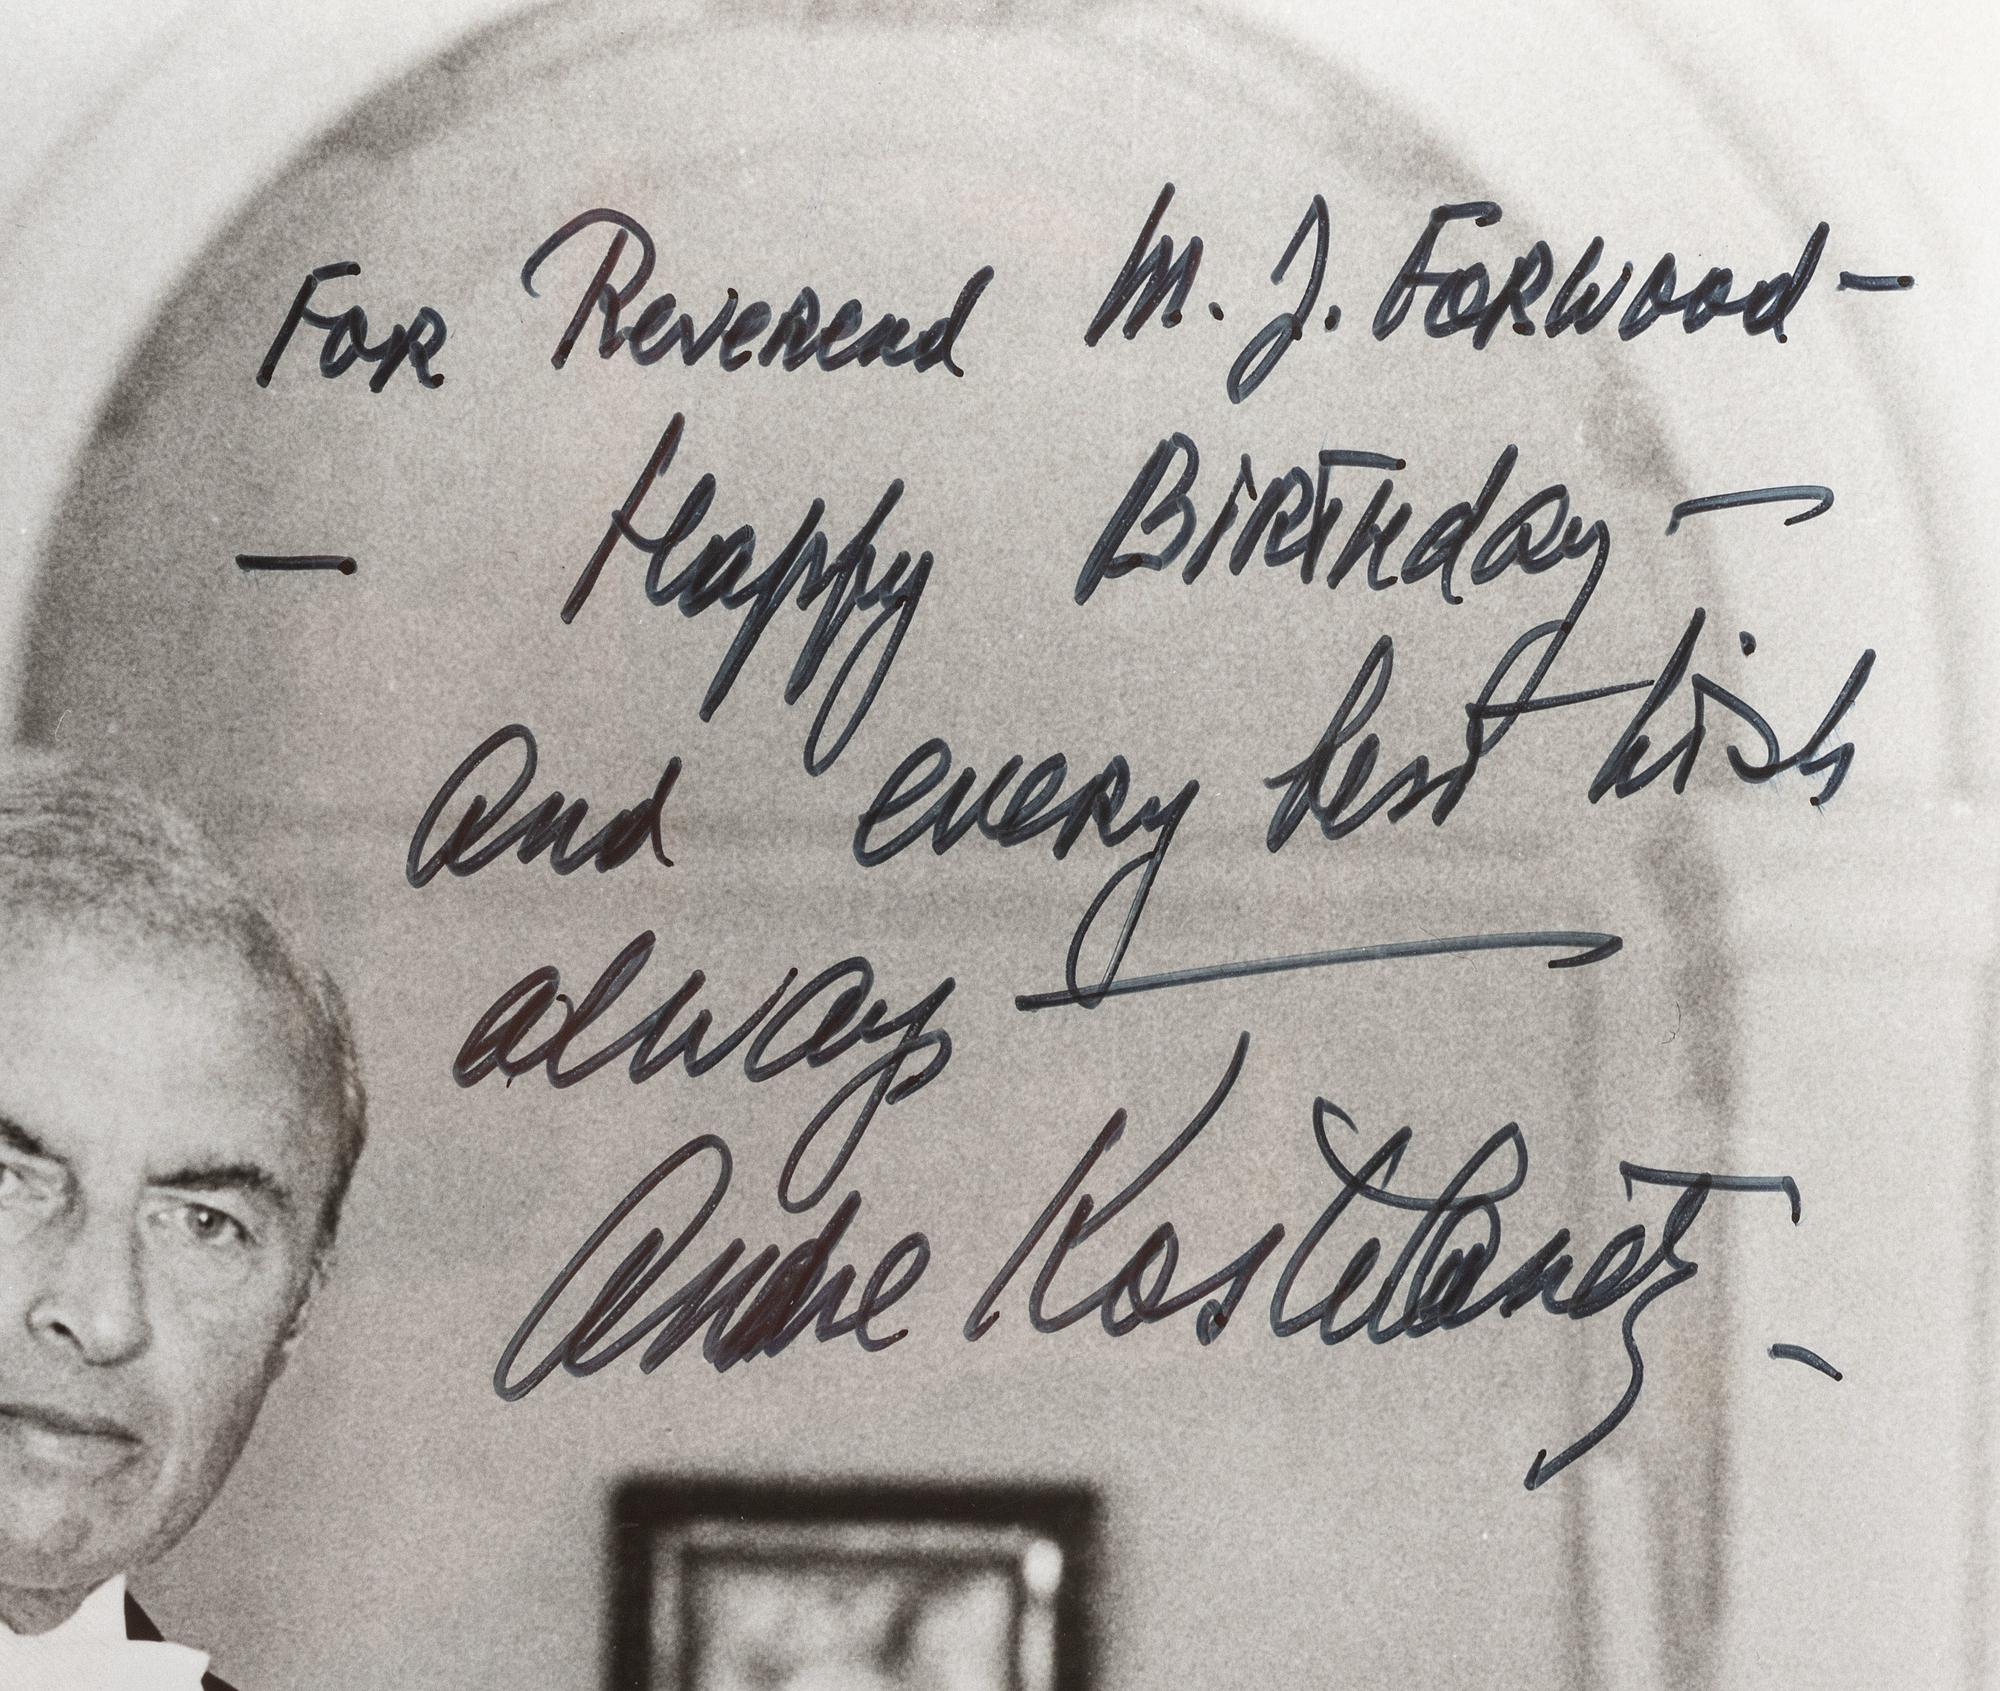 For Reverend M. J. Forwood —
— Happy Birthday —
and every best wish
always —
Andre Kostelanetz —